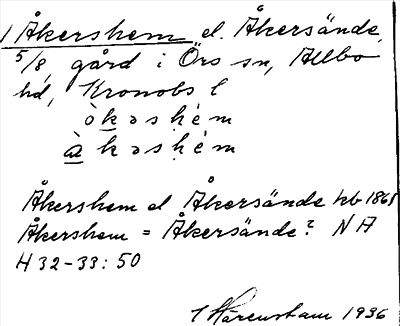 1 Åkershem el. Åkersände,
5/8, gård i Örs sn, Allbo
hd, Kronobs l
òkəshém
àkəshém
Åkershem el Åkersände hb 1868
Åkershem = Åkersände? NA
H 32-33:50
I Härenstam 1936